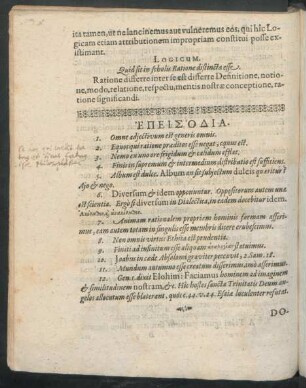 ita tamen, ut ne lancinemus aut vulneremus eos, qui hîc Lo-
gicam etiam attributionem impropriam constitui posse exi-
stimant.
LOGICUM.
Quid sit in scholis Ratione distincta esse.
Ratione differre inter se est differre Definitione, notio-
ne, modo, relatione, respectu, mentis nostræ conceptione, ra-
tione significandi.
ΕΠΕΙΣΟΔΙΑ.
1. Omne adjectivum est generis omnis.
2. Equos qui ratione præditos esse negat, equus est.
3. Nemo en unore frigidum & calidum efflat.
4. Finis in supremum & intermedium distributio est sufficiens.
5. Album est dulce. Album
Ajo & nego.
6. Diversum & idem opponuntur. Oppositorum autem una
est scientia. Ergò si diversum in Dialectica, in eadem docebitur idem.
7. Animam rationalem propriam hominis formam asseri-
mus, eam autem totam in singulis esse membris dicere erubescimus.
8. Non omnis virtus Ethica est prudentia.
9. Finiti ad infinitum esse aliquam statuimus.
10. Joabus in cæde Absolomi graviter peccavit, 2. Sam. 18.
11. Mundum autumnus esse creatum
12. Gen. 1. dixit Elohim: Faciamus hominem ad imaginem
& similitudinem nostram, &c. Hic hostes sanctæ Trinitatis Deum an-
gelos allocutum esse blaterant,
DO-